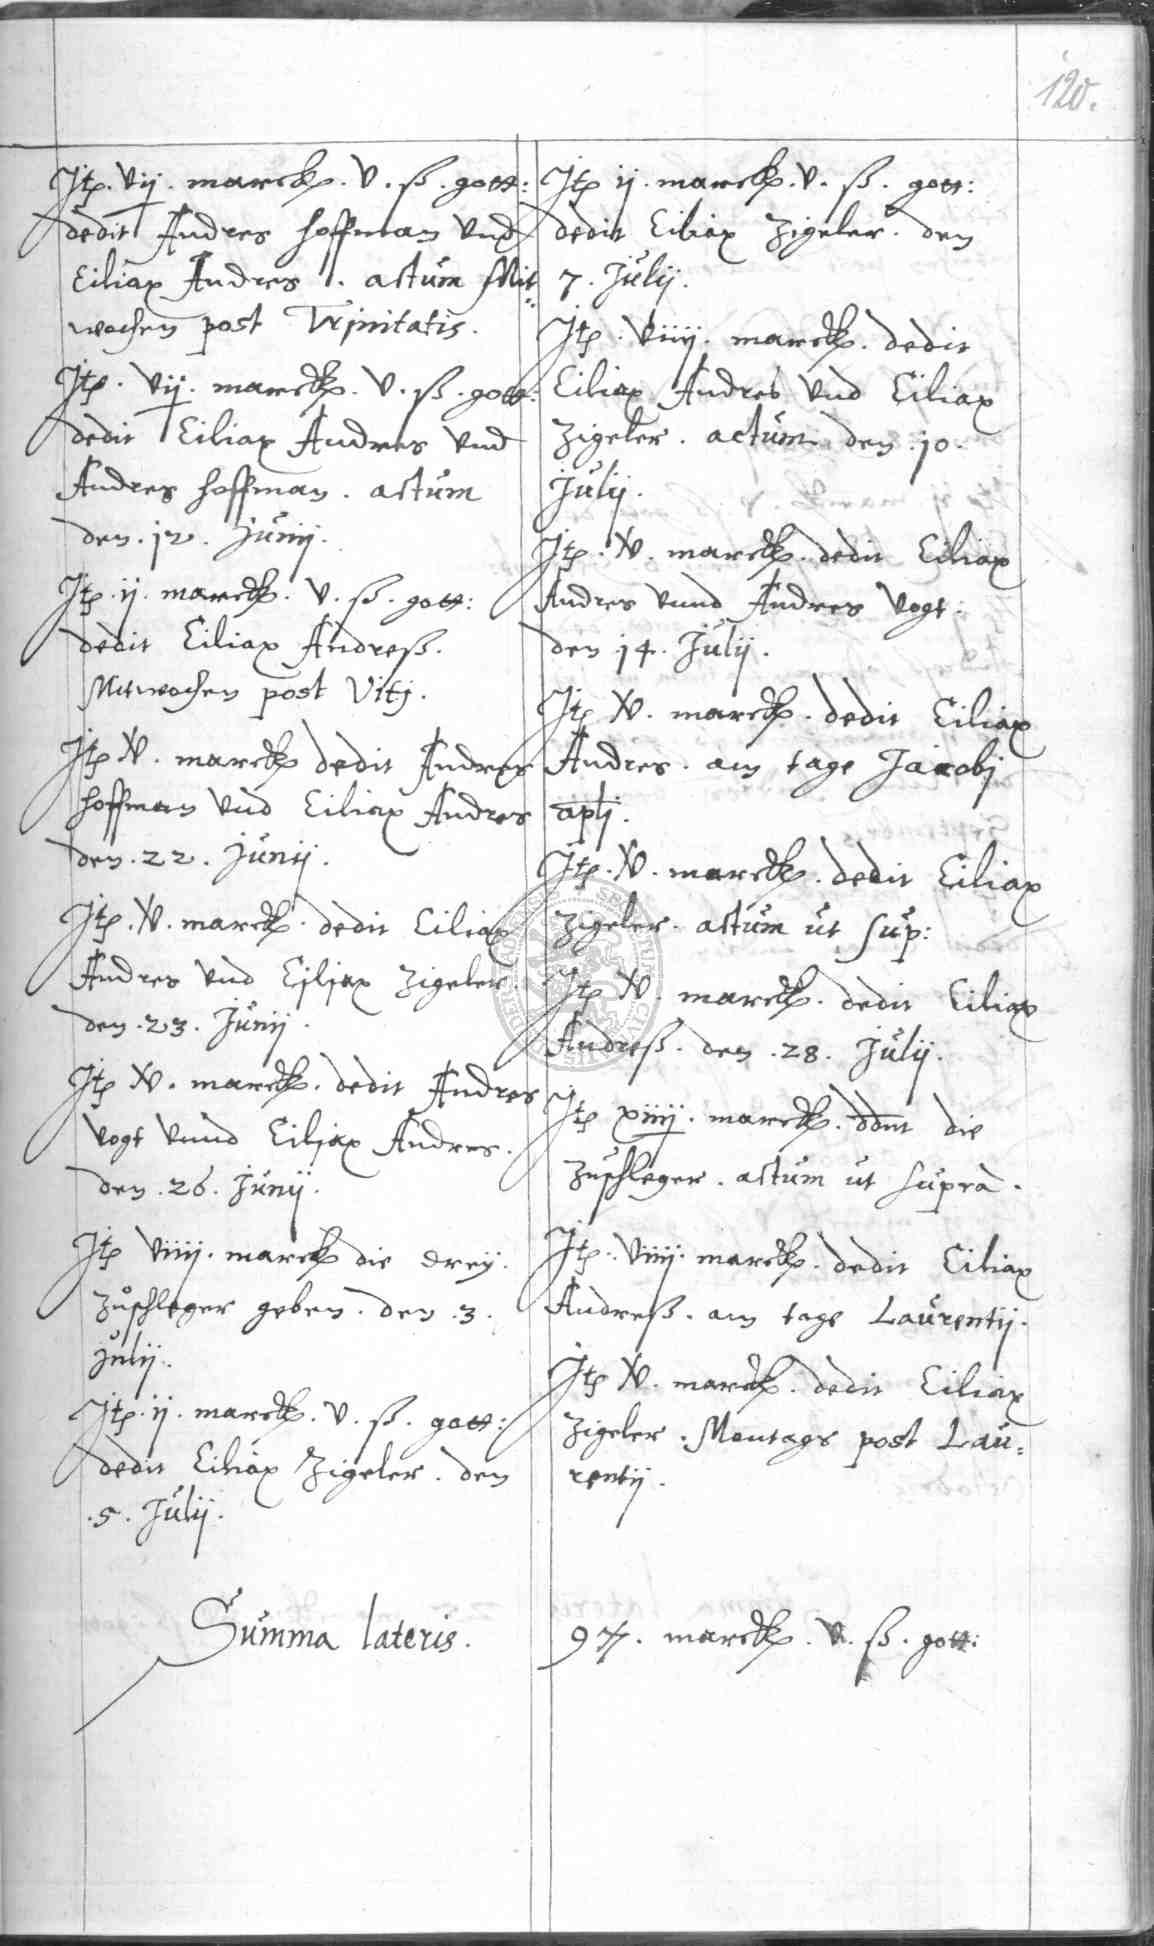 120.
Jtē. vij. marck. v. ß. gott:
dedit Andres Hoffman vnd
Ciliax Andres. actum Mit-
wochen post Trinitatis.
Jtē. vij. marck. v. ß. gott:
dedit Ciliax Andres vnd
Andres Hoffman. actum
den. 12. Junij.
Jtē. ij. marck. v. ß. gott:
dedit Ciliax Andreß.
Mitwochen post Vitj.
Jtē v. marck dedit Andres
Hoffman vnd Ciliax Andres
den. 22. Junij.
Jtē. v. marck. dedit Ciliax
Andres vnd Ciljax Zigeler.
den. 23. Junij.
Jtē v. marck. dedit Andres
Vogt vnnd Ciljax Andres.
den. 26. Junij.
Jtē viiij. marck die dreij.
Zuschleger geben. den. 3.
Julij.
Jtē. ij. marck. v. ß. gott:
dedit Ciliax Zigeler. den
.5. Julij.
Jtē ij. marck. v. ß. gott:
dedit Ciliax Zigeler. den
7. Julij.
Jtē. viiij. marck. dedit
Ciliax Andres vnd Ciliax
Zigeler. actum den. 10.
Julij.
Jtē. v. marck. dedit Ciliax
Andres vnnd Andres Vogt.
den 14. Julij.
Jtē v. marck. dedit Ciliax
Andres. am tage Jacobj
apli.
Jtē. v. marck. dedit Ciliax
Zigeler. actum ut sup:
Jtē v. marck. dedit Ciliax
Andreß. den. 28. Julij.
Jtē xiiij. marck. ddnt die
Zuschleger. actum ut supra.
Jtē. viiij. marck. dedit Ciliax
Andreß. am tage Laurentij.
Jtē v. marck. dedit Ciliax
Zigeler. Montags post Lau=
rentij.
Summa lateris. 97. marck. v. ß. gott: